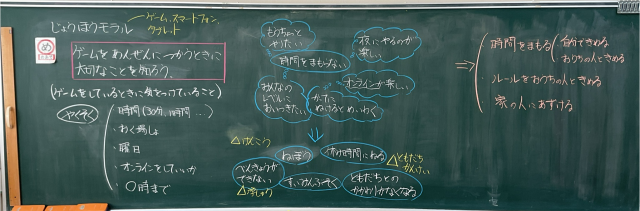 じょうほうモラル
ゲーム、スマートフォン、
タブレット
め
ゲームをあんぜんにつかうときに
大切なことを知ろう。
(ゲームをしているときに気をつけていること)
やくそく
時間(30分、1時間…)
おく場しょ
曜日
オンラインをしていいか
○時まで
もうちょっと
やりたい
夜にやるのが
楽しい
時間をまもらない
オンラインが楽しい
みんなの
レベルに
おいつきたい
かってに
ぬけるとめいわく
△けんこう
ねぼう
休み時間にねる
△ともだち
かんけい
べんきょうが
できない
すいみんぶそく
ともだちとの
かかわりがなくなる
時間をまもる
自分できめる
おうちの人ときめる
ルールをおうちの人ときめる
家の人にあずける